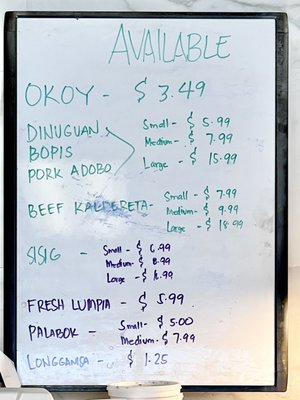 AVAILABLE
OKOY - $ 3.49
DINUGUAN
BOPIS
PORK ADOBO
Small - $ 5.99
Medium - $ 7.99
Large - $ 15.99
BEEF KALDERETA - Small - $ 7.99
Medium - $ 9.99
Large - $ 18.99
SISIG - Small - $ 6.99
Medium - $ 8.99
Large - $
FRESH LUMPIA - $ 5.99
PALABOK - Small - $ 5.00
Medium - $ 7.99
LONGGANISA - $ 1.25